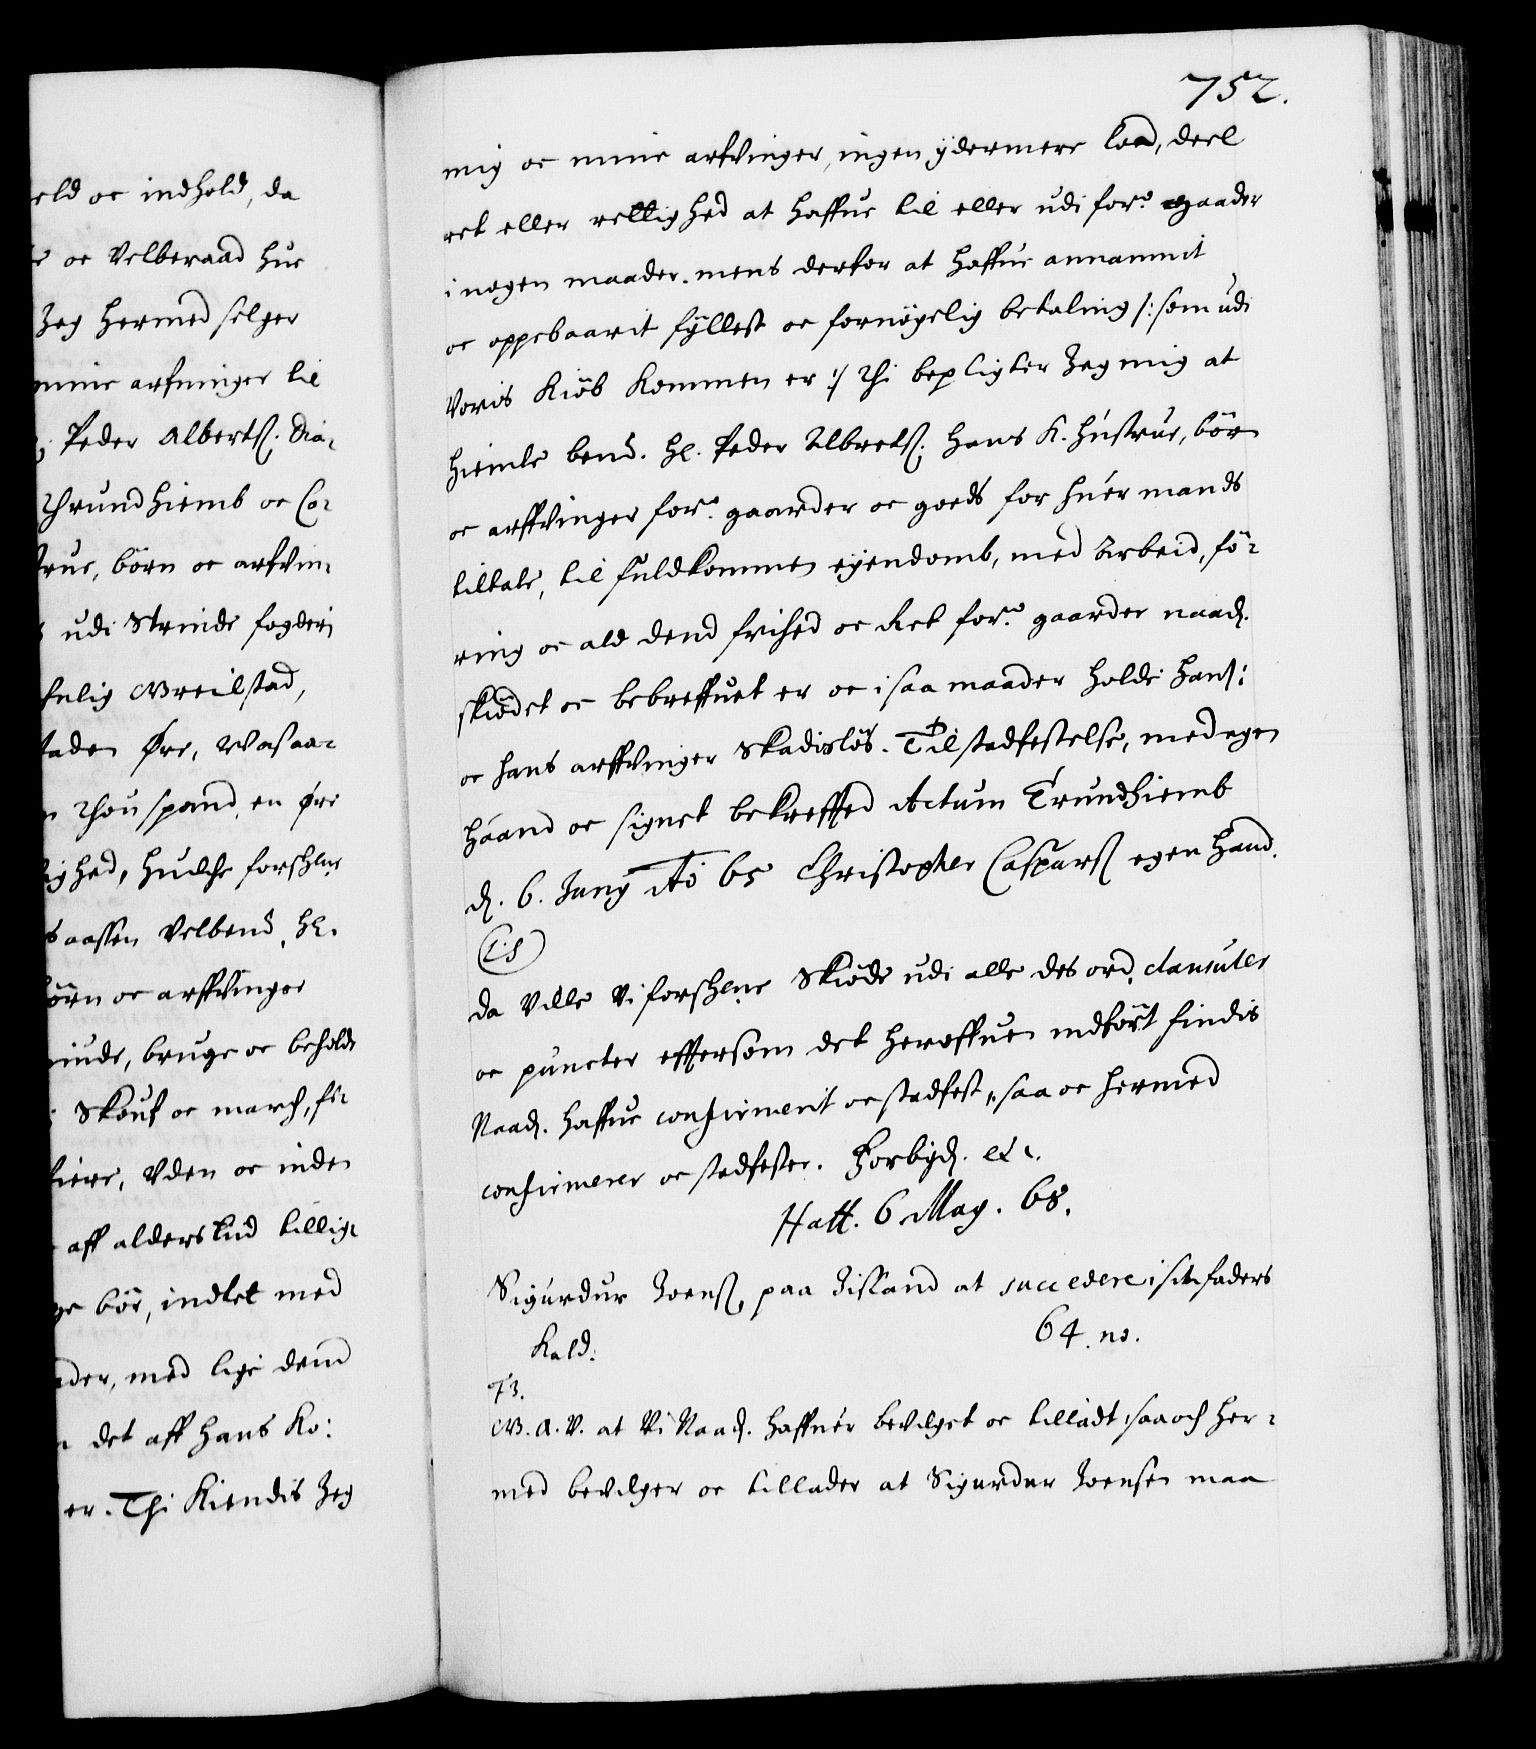 eld oc indhold, da
oc Velberaad hue
Jeg hermed selger
mine arfvinger til
Peder Alberts. Dia-
Thrundhiemb oc Co-
true, börn oc arfvin-
udi Strinde fogderi
fulig Wreilstad,
taden Øre, Wosaa-
n Thou spand, en øre
ighed, huilche forschne
saassen Velbend. Hl.
börn oc arffvinger
niude, bruge oc beholde
Skouf oc march, fi-
fiere, Uden oc inden
aff alders tid tillig-
ge bör, indtet med
der, med lige dend
det aff hans Ko:
er. Thi Kiendis Jeg
752.
mig oc mine arfvinger, ingen ydermere lod, deel
ret eller rettighed at haffue til eller udi for: gaader
i nogen maader. mens derfor at haffue annammit
oc oppebaarit fyllest oc fornöyelig betaling /: som udi
Voris Kiöb Kommen er :/ Thi bepligter Jeg mig at
hiemle bemd. Hl. Peder Albrets. hans K. hustrue, börn
oc arffvinger for: gaarder oc goeds for huer mands
tiltale, til fuldkommen eyendomb, med Arbeid, fö-
ring oc ald dend frihed oc Ret for: gaarder naad.
skiödet oc bebreffuet er oc i saa maader holde hans:
oc hans arffvinger Skadislös. Til stadfestelse, med egen
haand oc signet bekreffted Actum Trundhiemb
d. 6. Juny Ao 65 Christopher Caspars egen haand.
(LS)
da Ville Vi forschne Skiöde udi alle des ord, clausuler
oc puncter efftersom det heroffuen indfört findis
Naad. haffue confirmerit oc stadfest, saa oc hermed
confirmerer oc stadfester. Forbiud. etc.
Haff. 6 May. 68.
Sigurdur Joens, paa Island at succedere i sin faders
Kald.
64. no.
F3.
W. A. V. at Vi Naad. haffuer bevilget oc tilladt, saa och her-
med bevilger oc tillader at Sigurdur Joensen maa